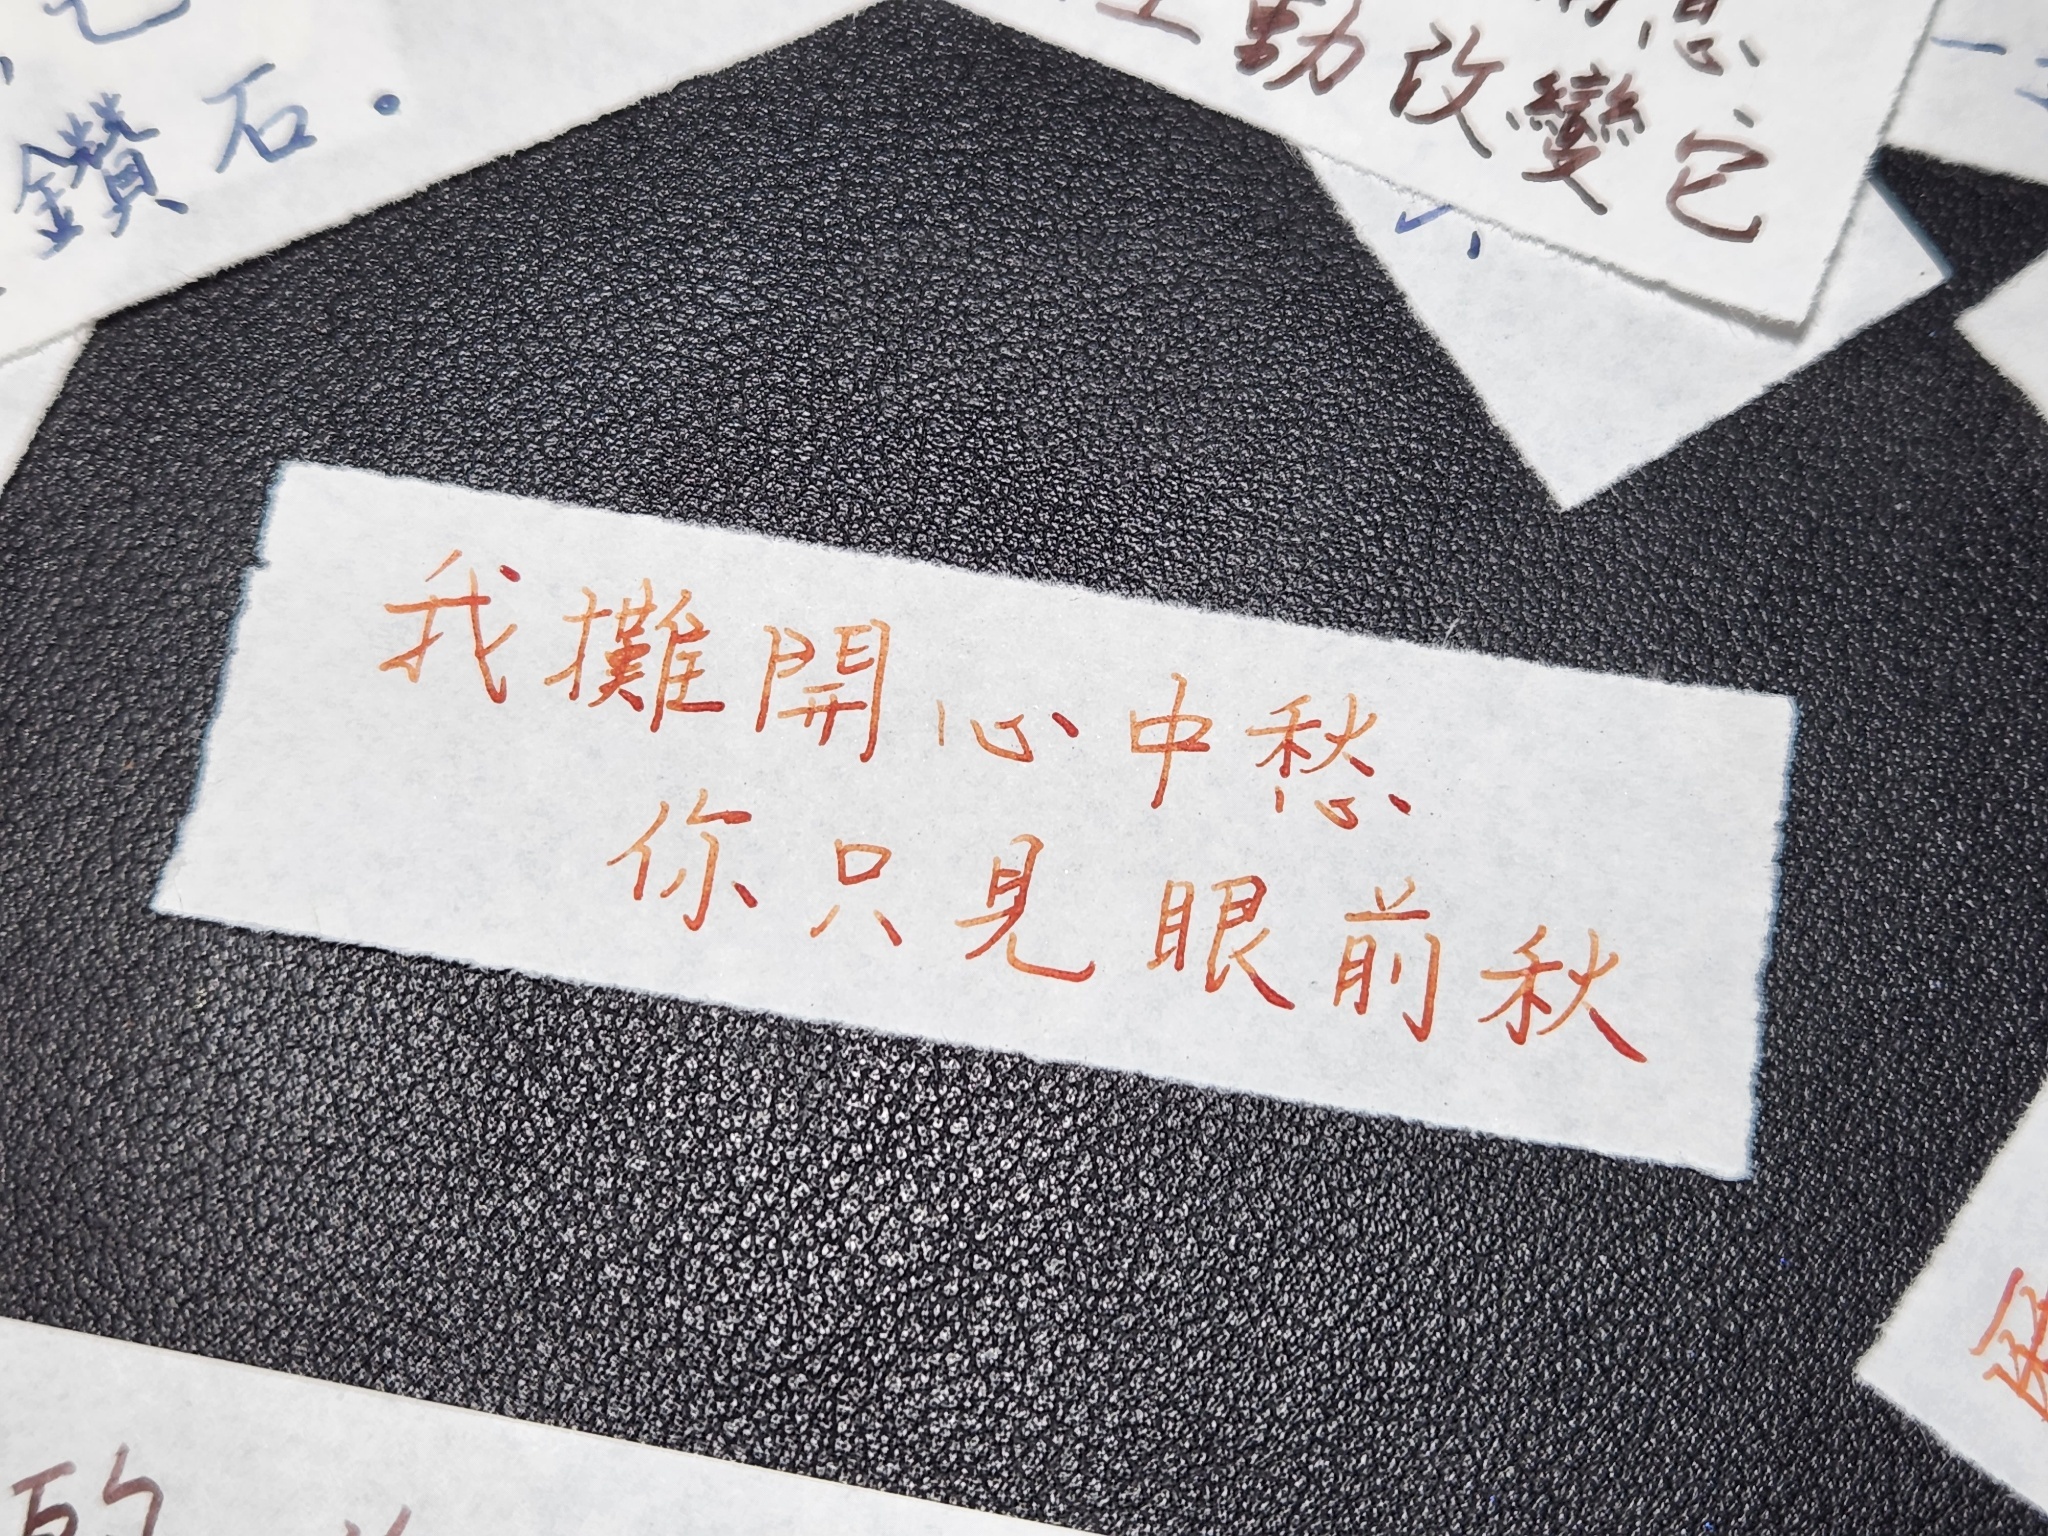 鑽石.
動改變它
我攤開心中愁
你只見眼前秋
的